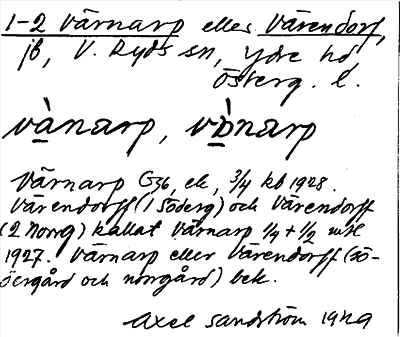 1-2 Värnarp eller Värendorf,
jb, V. Ryds sn, Ydre hd,
Österg. l.
và̱narp, vò̱narp
Värnarp G36, ek, 3/4 kb 1928.
Värendorff (1 Söderg) och Värendorff
(2 Norrg) kallat Värnarp 1/4 + 1/2 mtl
1927. Värnarp eller Värendorff (sö-
dergård och norrgård) bek.
Axel Sandström 1929